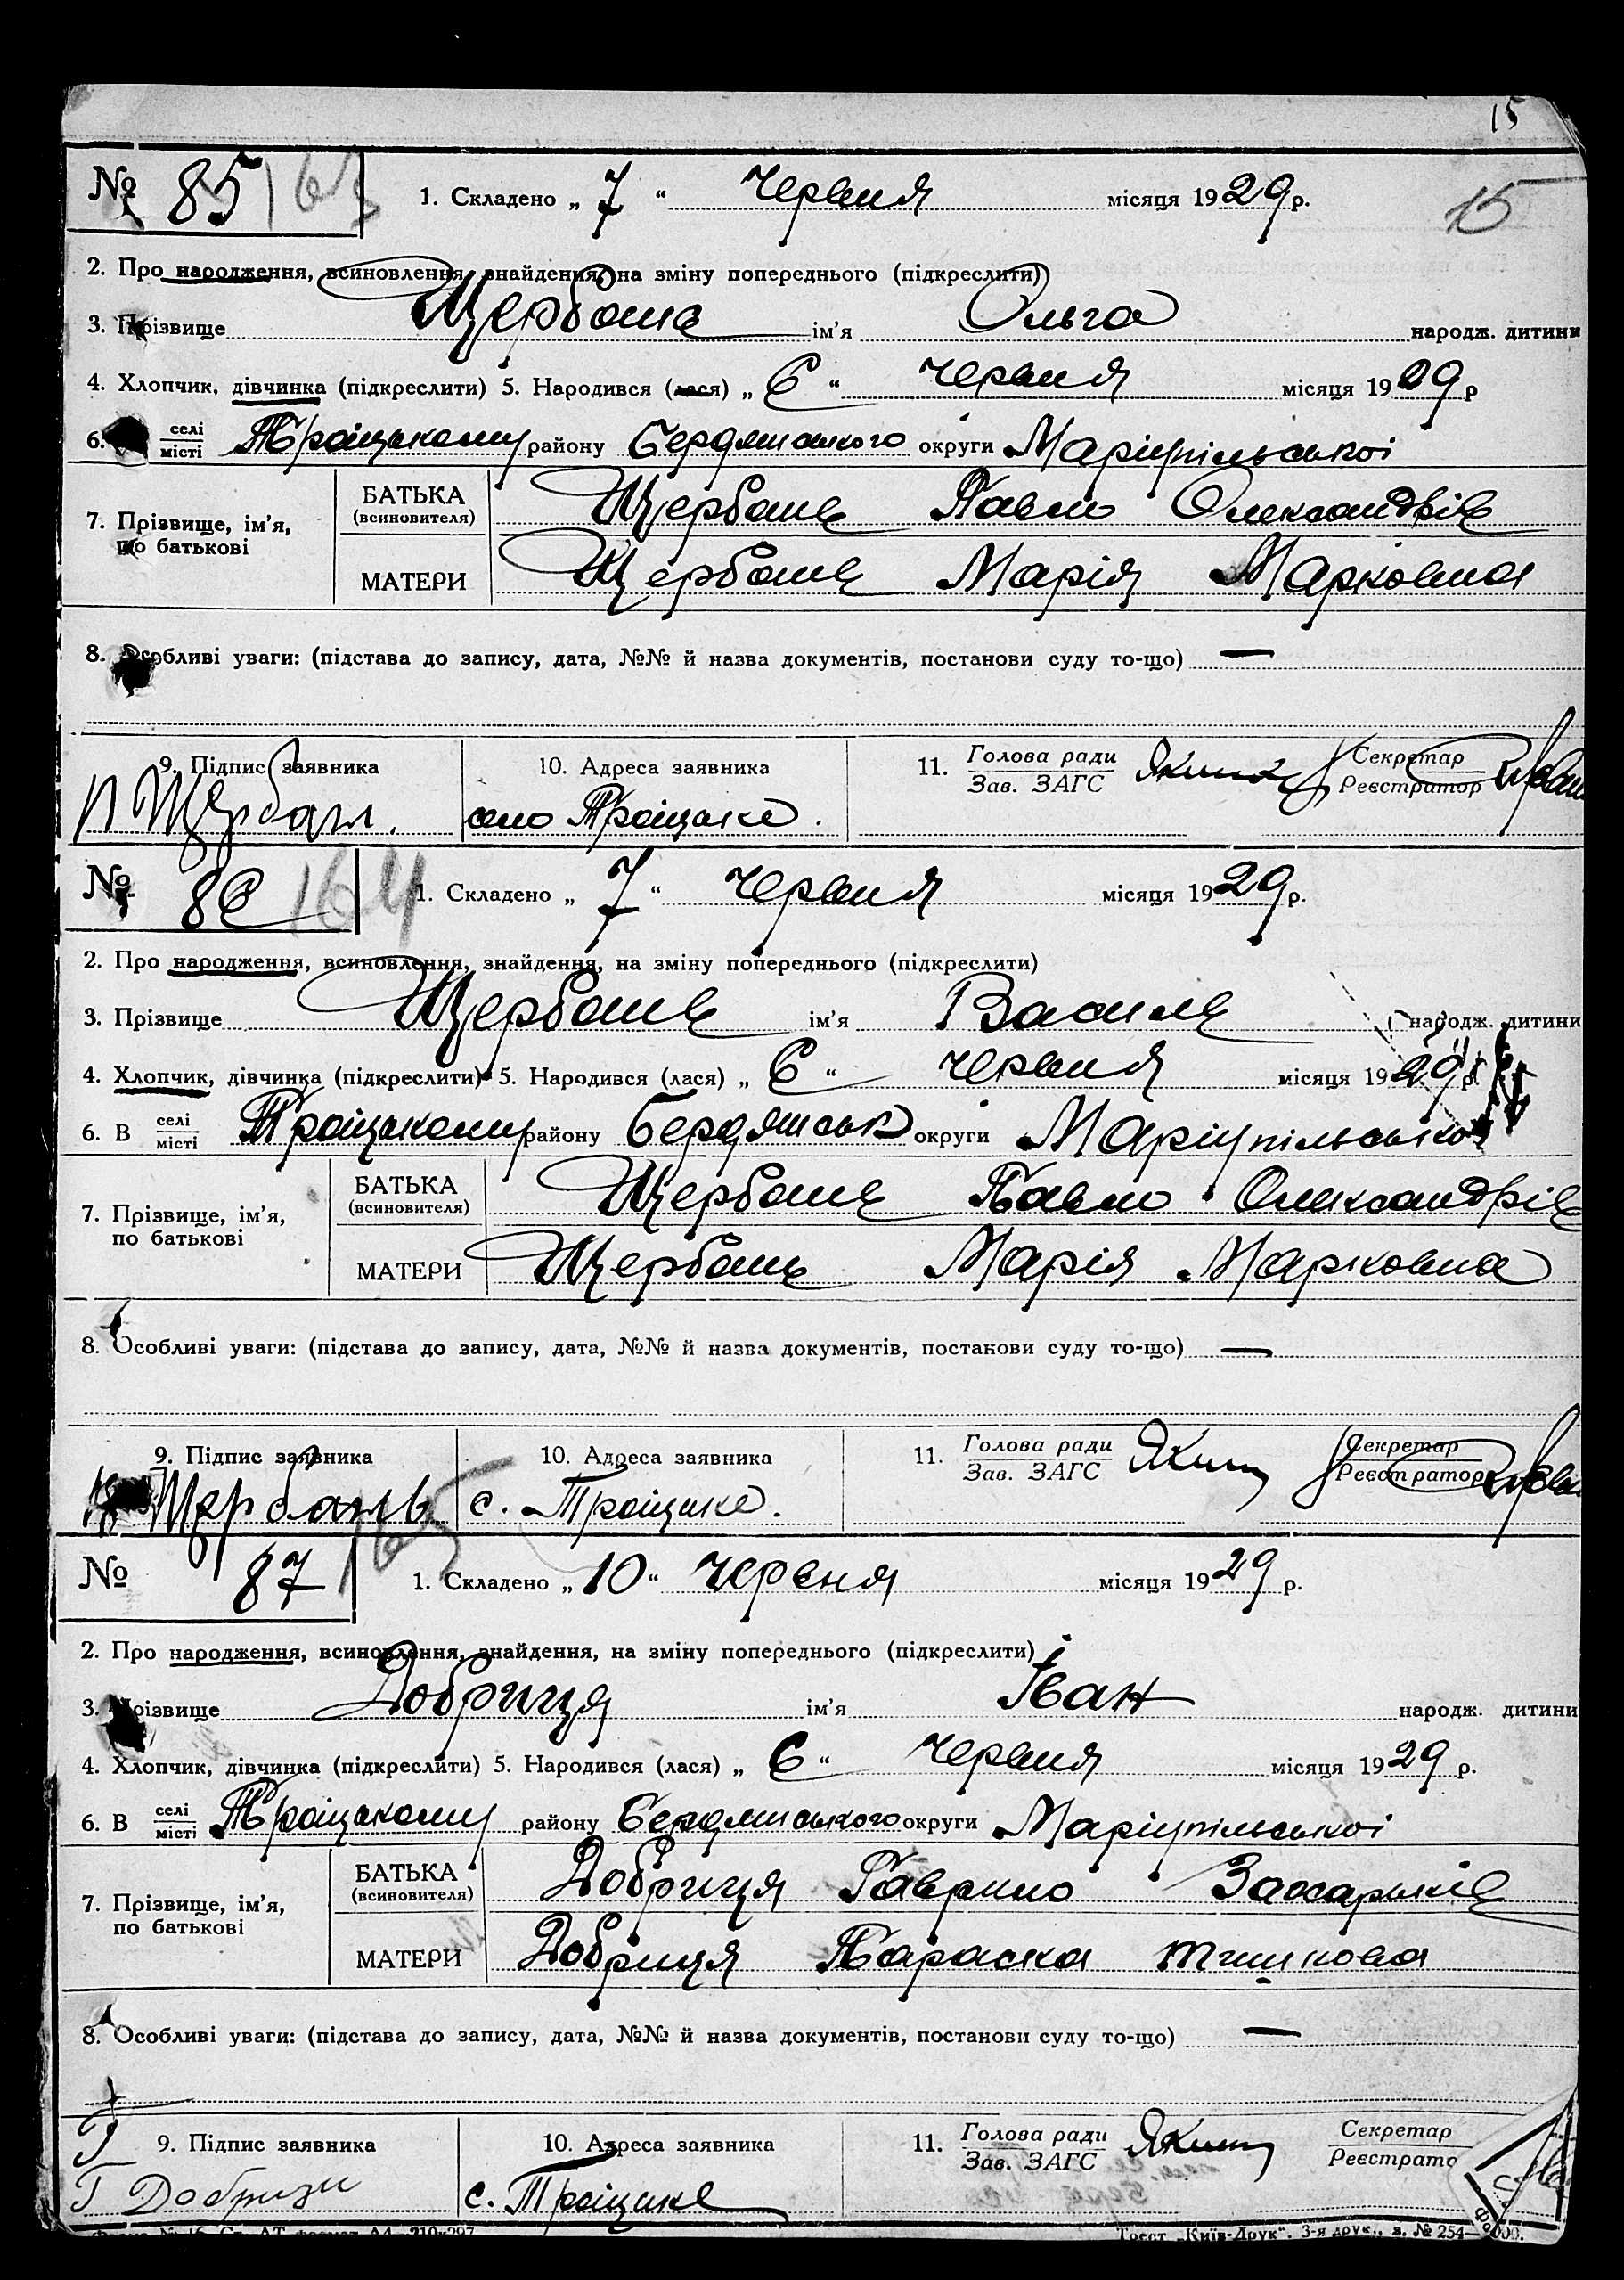 15
№ 85 163 1. Складено „ 7 “ Червня місяця 1929 р. 15
2. Про народження, всиновлення, знайдення, на зміну попереднього (підкреслити)
3. Прізвище Щербань ім’я Ольга народж. дитини
4. Хлопчик, дівчинка (підкреслити) 5. Народився (лася) „ 6 “ червня місяця 1929 р
6. селі місті Троіцькому району Бердянського округи Маріупільскоі
7. Прізвище, ім’я, по батькові БАТЬКА (всиновителя) Щербань Павло Олександрів
МАТЕРИ Щербань Марія Марковна
8. Особливі уваги: (підстава до запису, дата, №№ й назва документів, постанови суду то-що) —
9. Підпис заявника 10. Адреса заявника 11. Голова ради Зав. ЗАГС Секретар Реєстратор
П Щербань. село Троіцьке.
№ 86 164 1. Складено „ 7 “ червня місяця 1929 р.
2. Про народження, всиновлення, знайдення, на зміну попереднього (підкреслити)
3. Прізвище Щербань ім’я Василь народж. дитини
4. Хлопчик, дівчинка (підкреслити) 5. Народився (лася) „ 6 “ червня місяця 1929 р.
6. В селі місті Троіцькому району Бердянськ округи Маріупільсько
7. Прізвище, ім’я, по батькові БАТЬКА (всиновителя) Щербань Павло Олександрів
МАТЕРИ Щербань Марія Марковна
8. Особливі уваги: (підстава до запису, дата, №№ й назва документів, постанови суду то-що) —
9. Підпис заявника 10. Адреса заявника 11. Голова ради Зав. ЗАГС Секретар Реєстратор
Щербань с. Троіцьке.
№ 87 165 1. Складено „ 10 “ червня місяця 1929 р.
2. Про народження, всиновлення, знайдення, на зміну попереднього (підкреслити)
3. Прізвище Добриця ім’я Іван народж. дитини
4. Хлопчик, дівчинка (підкреслити) 5. Народився (лася) „ 6 “ червня місяця 1929 р.
6. В селі місті Троіцькому району Бердянського округи Маріупільскоі
7. Прізвище, ім’я, по батькові БАТЬКА (всиновителя) Добриця Гаврило Захарьків
МАТЕРИ Добриця Параска Тишкова
8. Особливі уваги: (підстава до запису, дата, №№ й назва документів, постанови суду то-що) —
9. Підпис заявника 10. Адреса заявника 11. Голова ради Зав. ЗАГС Секретар Реєстрато
Г Добрици с. Троіцьке
Трест „Київ-Друк“. 3-я друк., з. № 254—